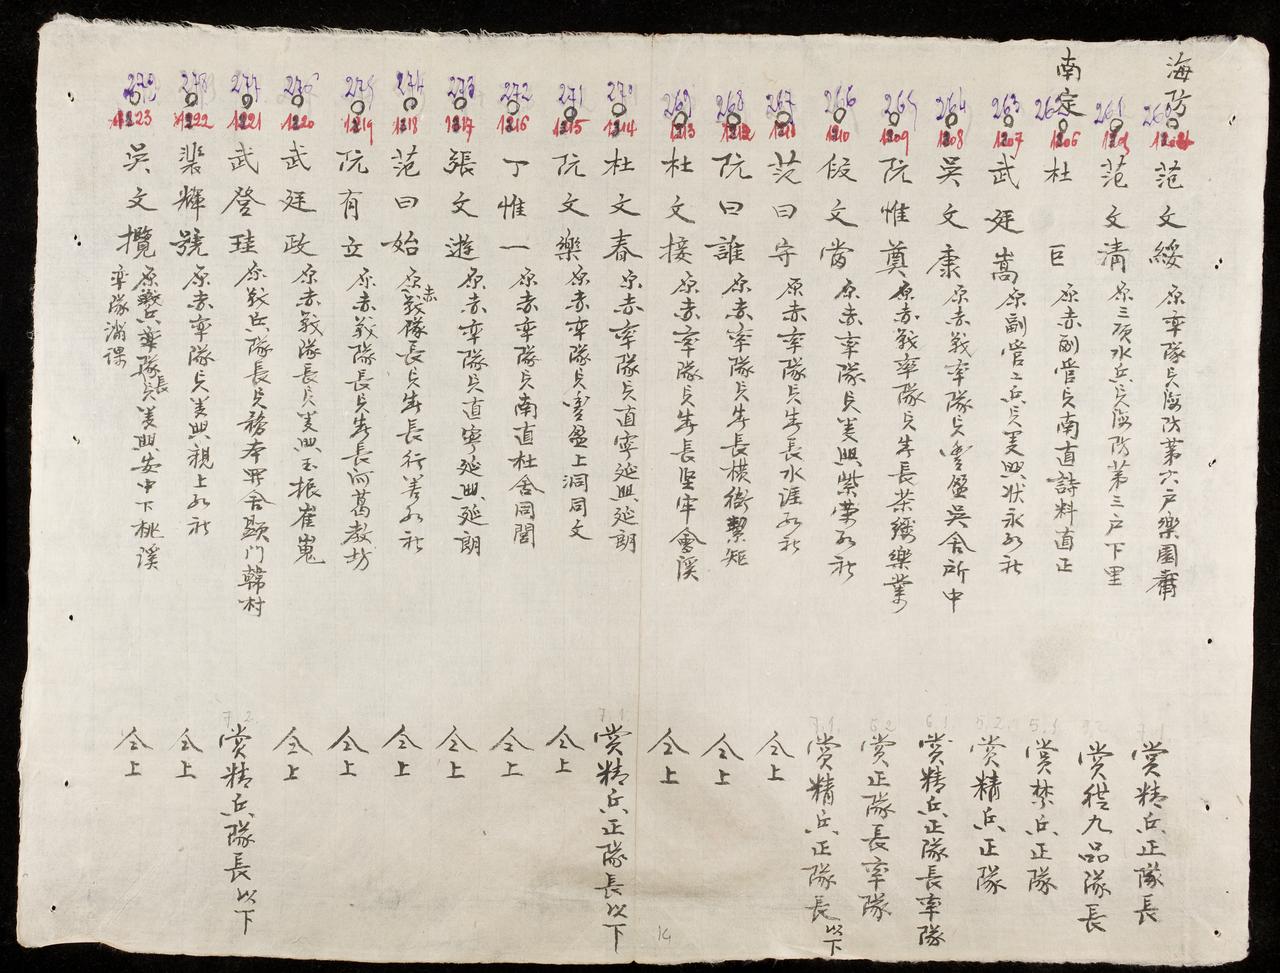 海防
260
范文綏 原率隊兵海防第六戶樂園
賞精兵正隊長
7.1
261
范文清 原三項水兵兵海防第三戶下里
賞從九品隊長
南定
262
1206
杜巨 原赤副管兵南直詩料直正
賞禁兵正隊
5.1
263
1207
武廷嵩 原副管之兵兵美興狀永社
賞精兵正隊
5.2
264
1208
吳文康 原赤戰率隊兵豐盈吳舍所中
賞精兵正隊長率隊
6.1
265
1209
阮惟奠 原赤戰率隊兵生長茶縷樂業
賞正隊長率隊
6.2
266
1210
段文當 原赤率隊兵美興紫榮社
賞精兵正隊長以下
7.1
267
1211
范曰守 原赤率隊兵生長水涯社
仝上
268
1212
阮曰誰 原赤率隊兵生長橫衝絜矩
仝上
269
1213
杜文接 原赤率隊兵生長堅牢會溪
仝上
270
1214
杜文春 原赤率隊兵直寧延興延朗
賞精兵正隊長以下
7.1
271
1215
阮文樂 原赤率隊兵豐盈上洞同文
仝上
272
1216
丁惟一 原赤率隊兵南直杜舍同閭
仝上
273
1217
張文遊 原赤率隊兵直寧延興延朗
仝上
274
1218
范曰始 原赤戰隊長兵生長行善社
仝上
275
1219
阮有立 原赤戰隊長兵生長阿葛教坊
仝上
276
1220
武廷政 原赤戰隊長兵美興玉振崔嵬
仝上
277
1221
武登珪 原戰兵隊長兵務本羿舍顯門韓村
賞精兵隊長以下
7.2
278
1222
裴輝號 原赤率隊兵美興親上社
仝上
279
1223
吳文攬 隊長兵美興安中下桃溪
率隊滿課
仝上
14